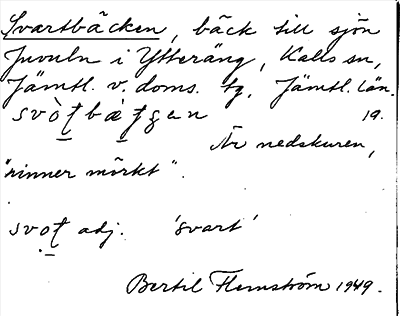 Svartbäcken, bäck till sjön
Juvuln i Ytteräng, Kalls sn,
Jämtl. v. doms. tg. Jämtl. län.
svòt̠bèt̠gen 19.
Är nedskuren,
"rinner mörkt".
svot̠ adj. 'svart'
Bertil Flemström 1949.